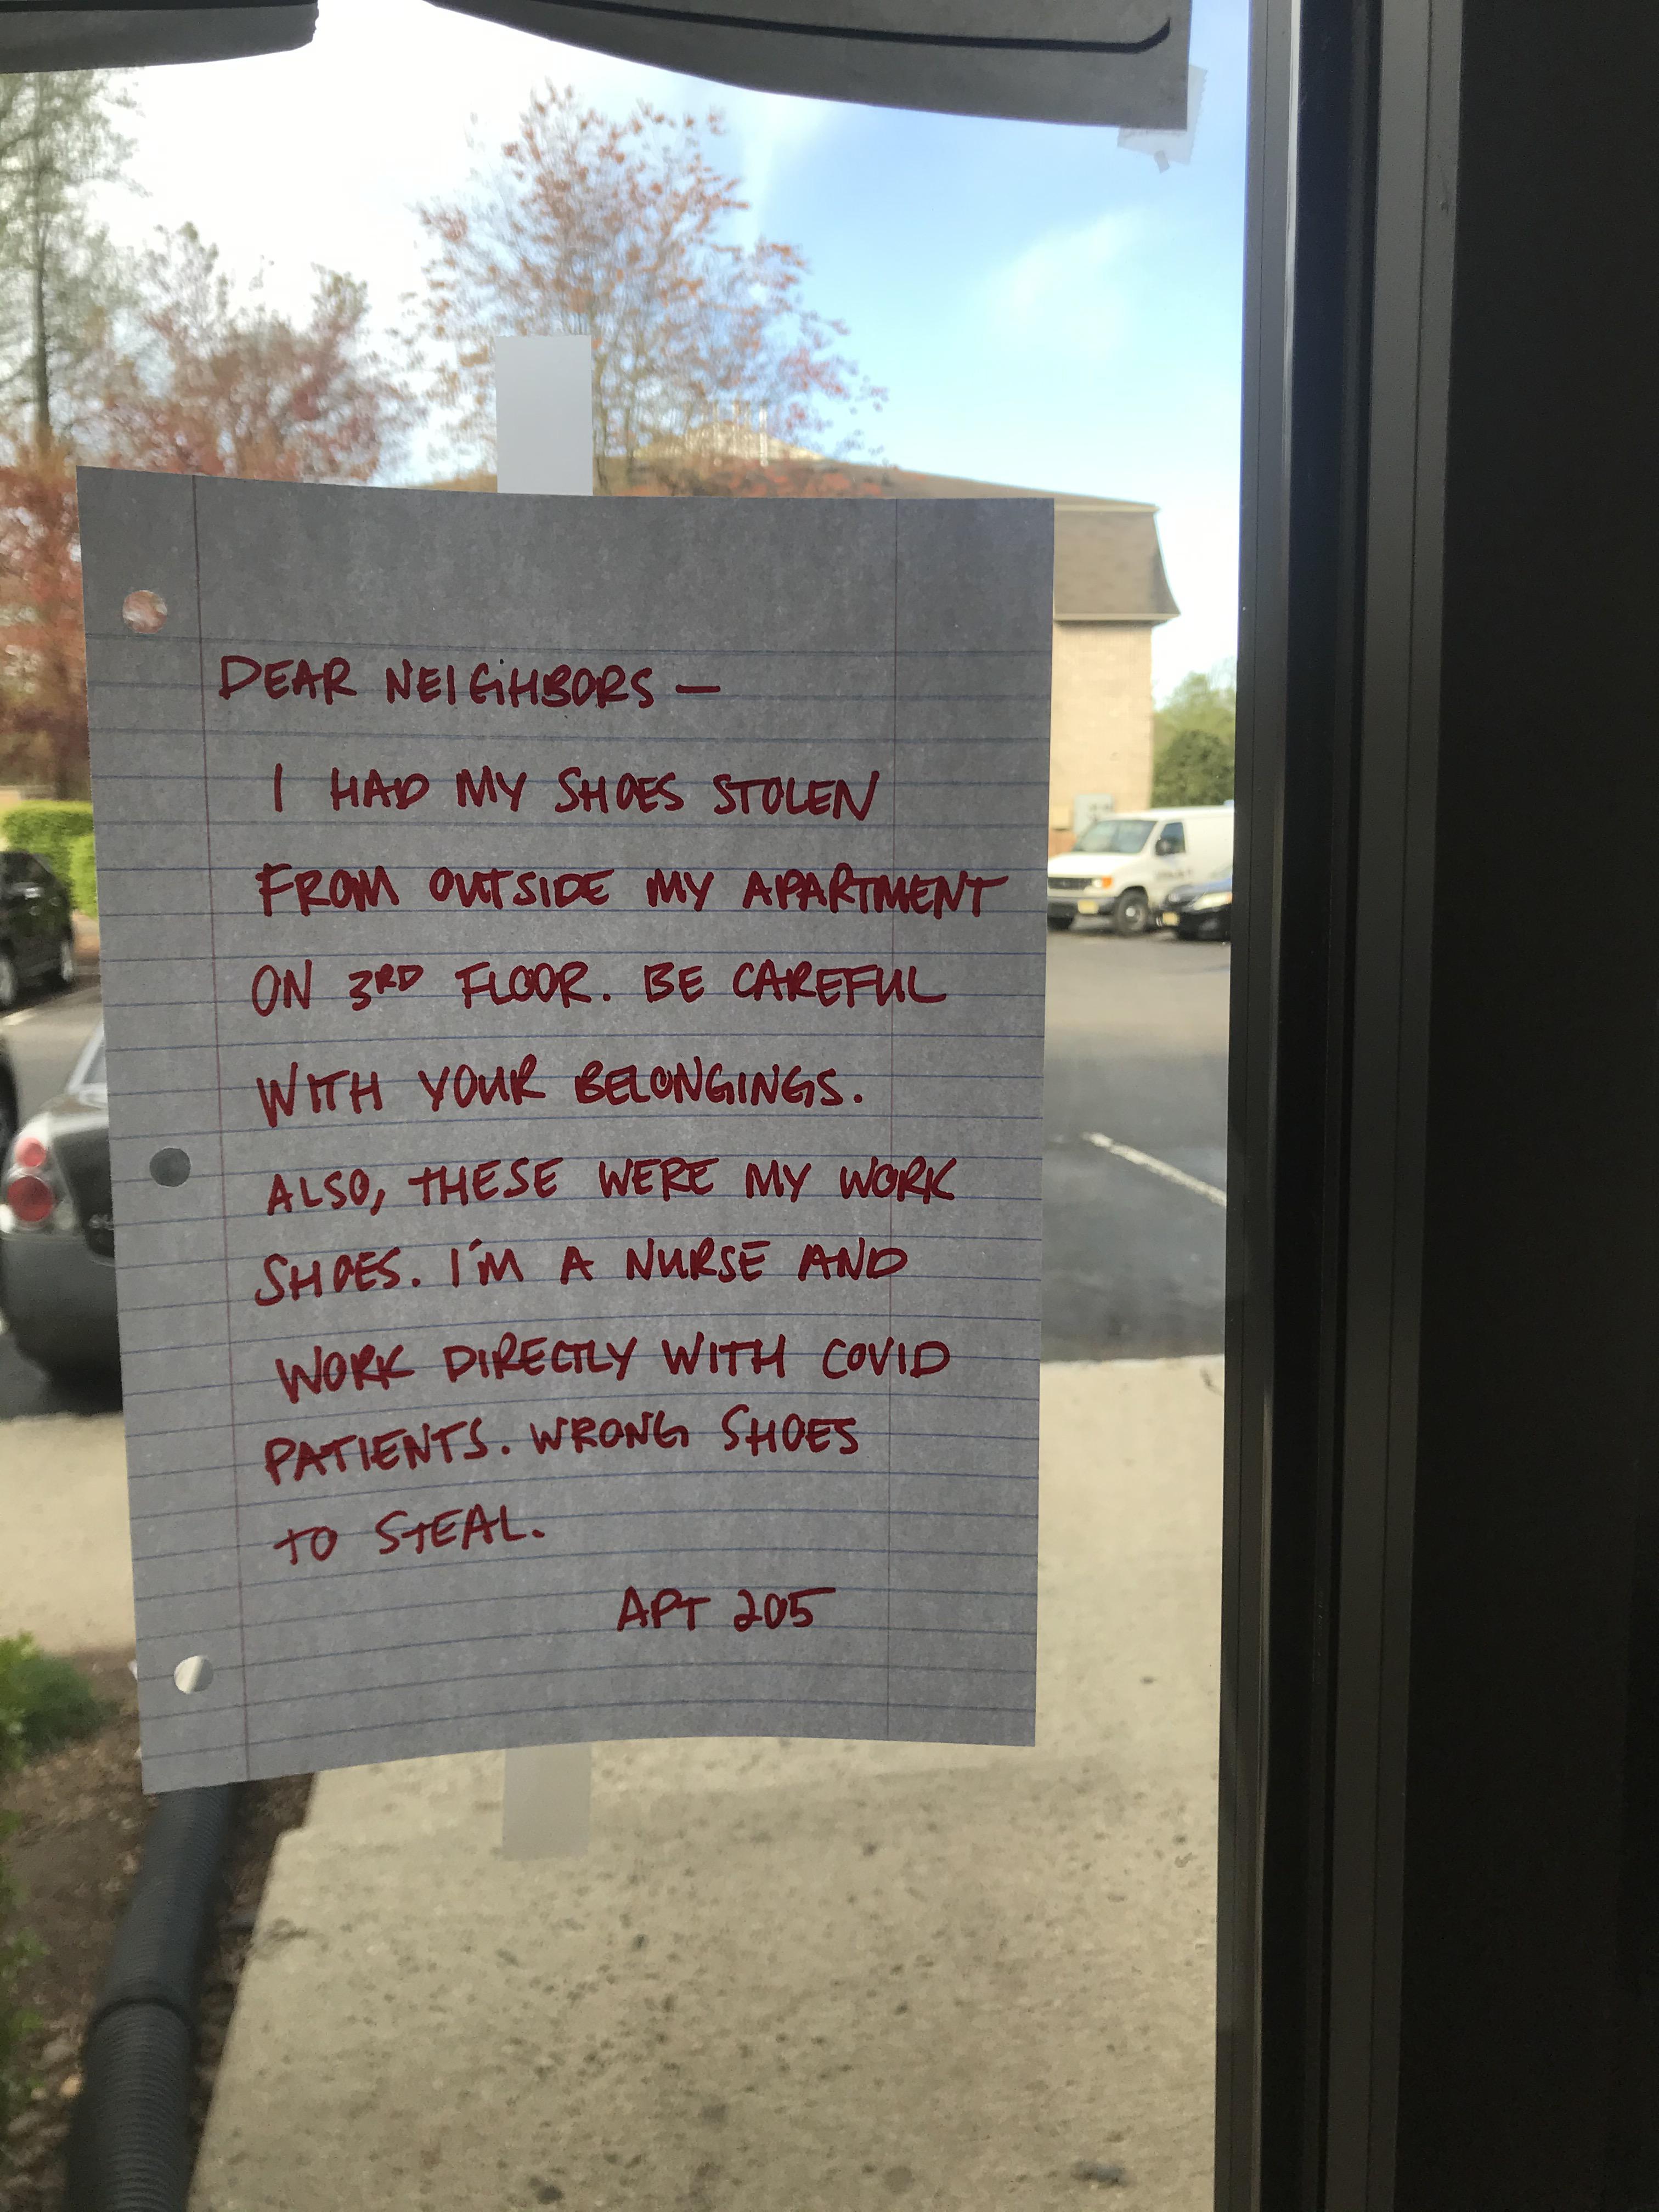 DEAR NEIGHBORS —
I HAD MY SHOES STOLEN
FROM OUTSIDE MY APARTMENT
ON 3RD FLOOR. BE CAREFUL
WITH YOUR BELONGINGS.
ALSO, THESE WERE MY WORK
SHOES. I'M A NURSE AND
WORK DIRECTLY WITH COVID
PATIENTS. WRONG SHOES
TO STEAL.
APT 205